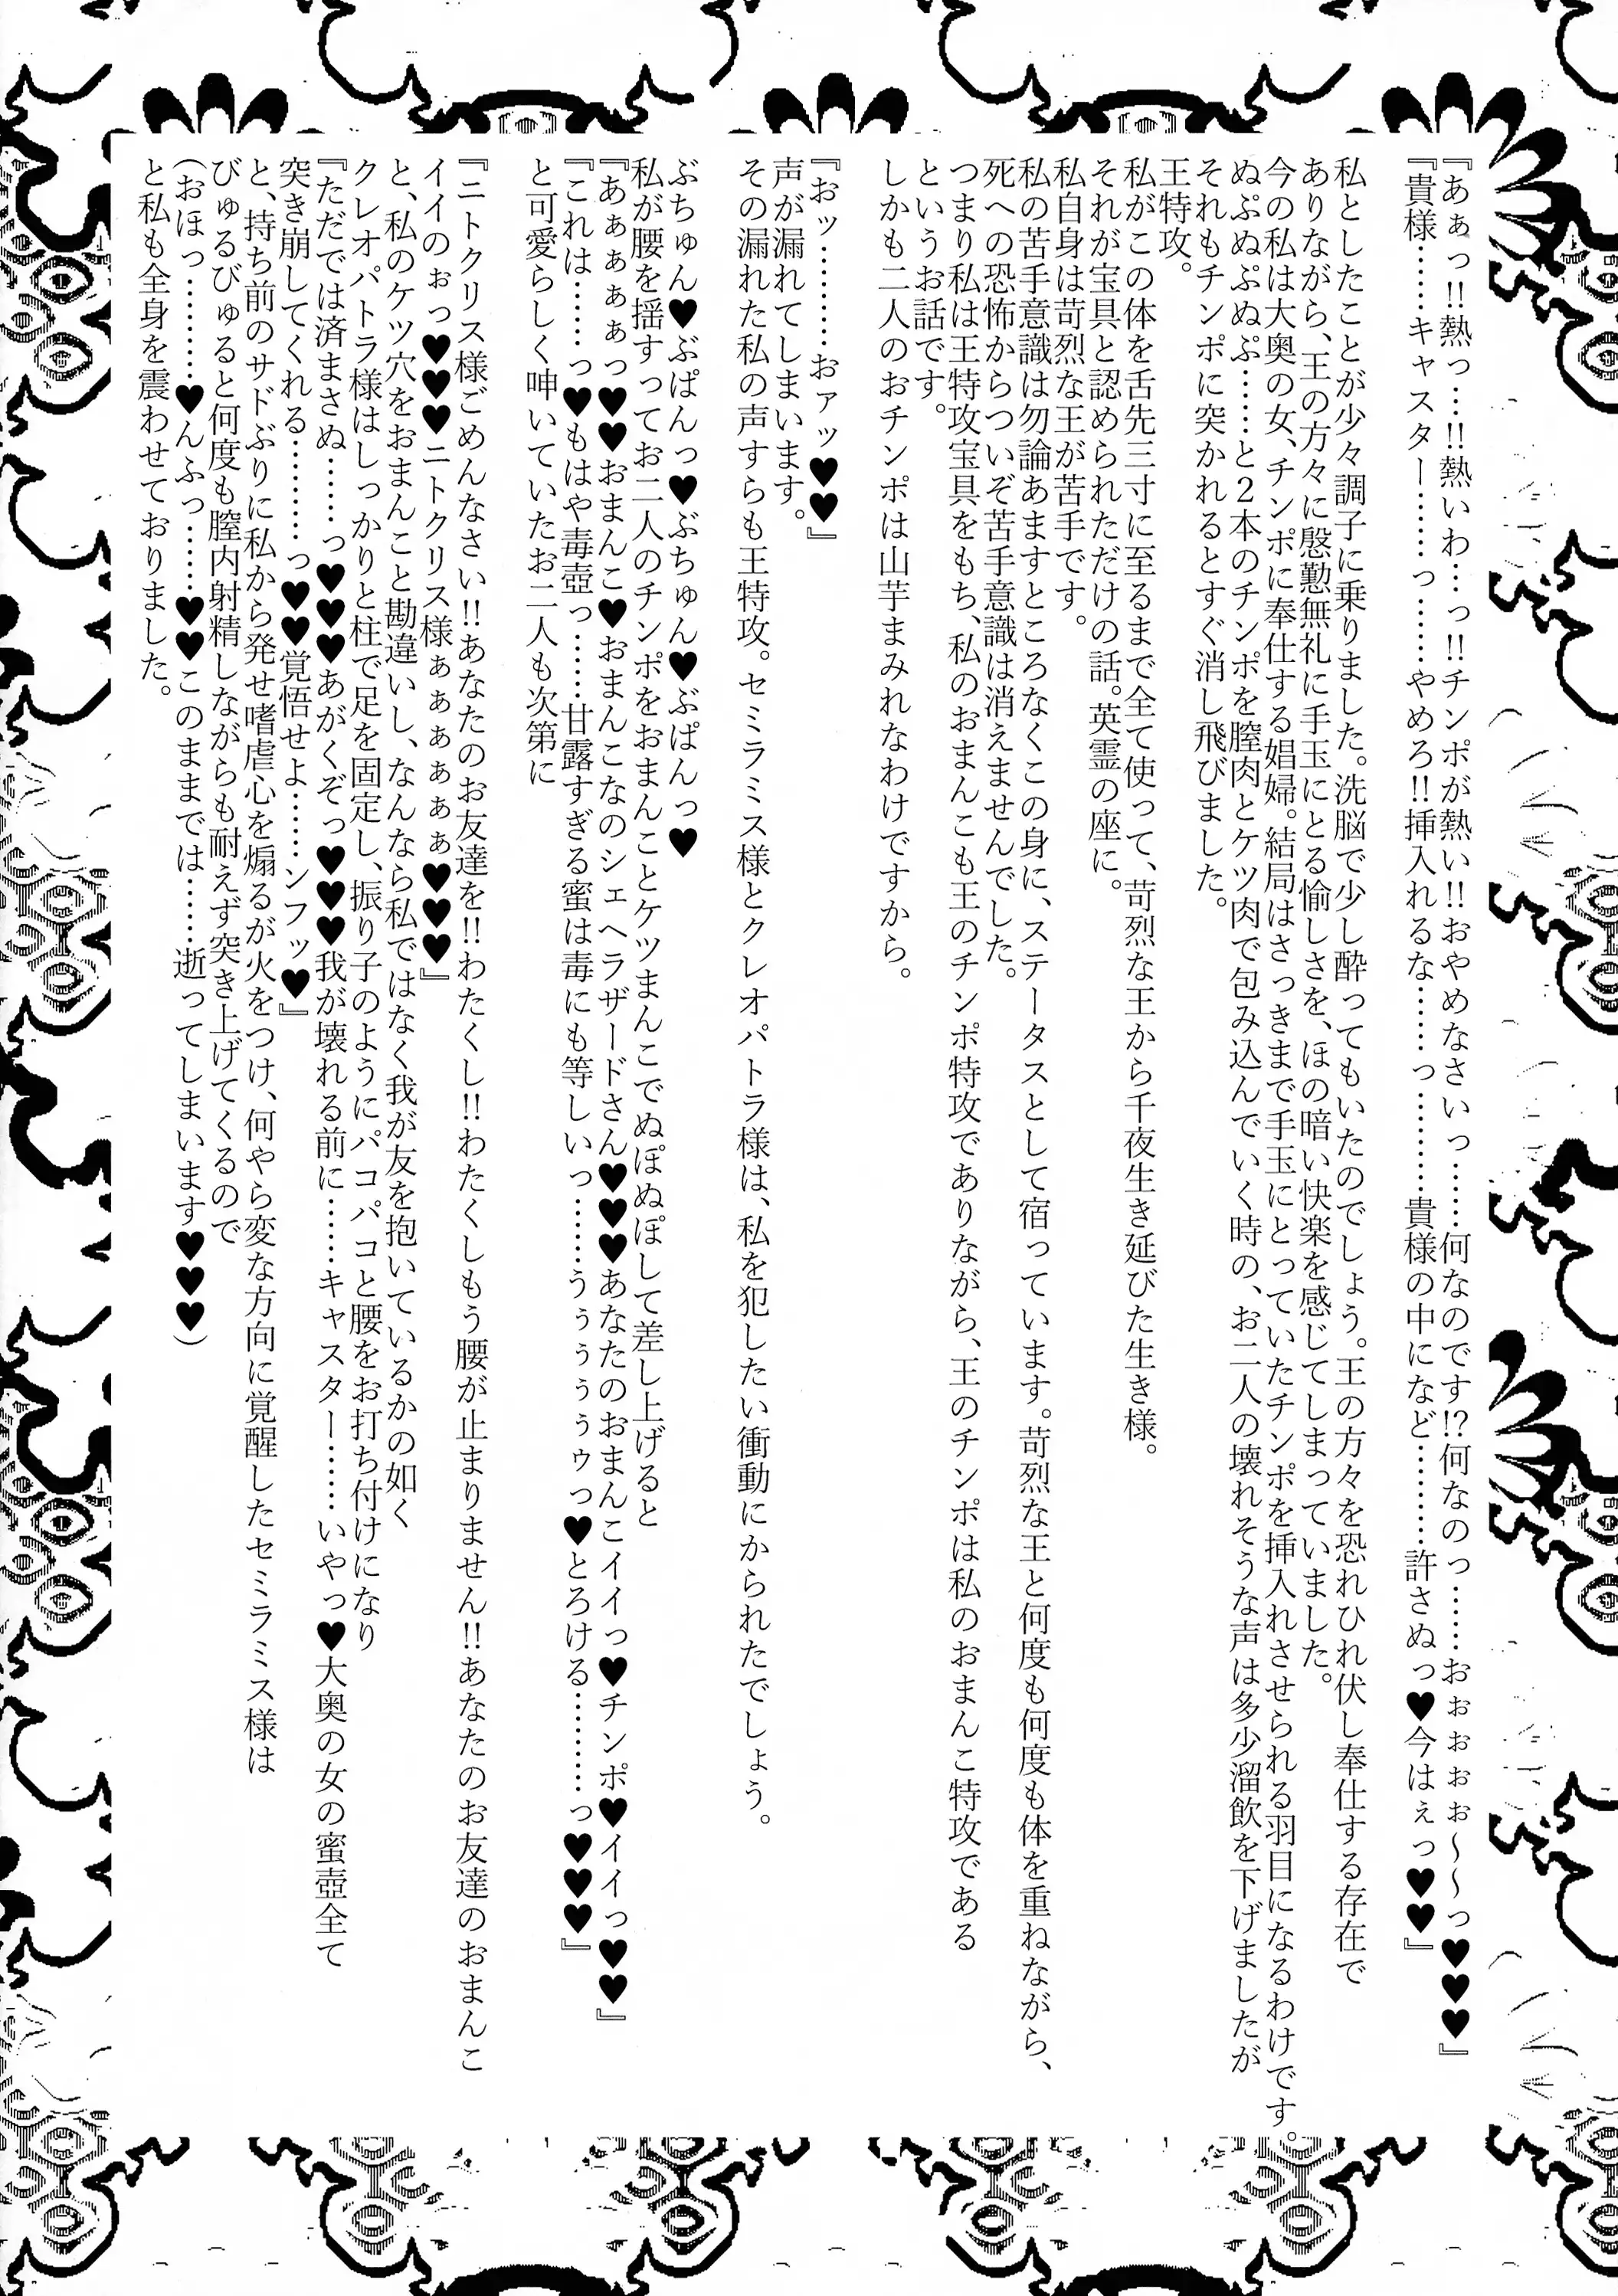 『あぁっ!!熱っ…!!熱いわ…っ!!チンポが熱い!!おやめなさいっ……何なのです!?何なのっ……おぉぉぉぉ～～っ♥♥♥』
『貴様……キャスター……っ……やめろ!!挿入れるな……っ………貴様の中になど………許さぬっ♥今はぇっ♥♥』
私としたことが少々調子に乗りました。洗脳で少し酔ってもいたのでしょう。王の方々を恐れひれ伏し奉仕する存在で
ありながら、王の方々に慇懃無礼に手玉にとる愉しさを、ほの暗い快楽を感じてしまっていました。
今の私は大奥の女、チンポに奉仕する娼婦。結局はさっきまで手玉にとっていたチンポを挿入れさせられる羽目になるわけです。
ぬぷぬぷぬぷ……と2本のチンポを膣肉とケツ肉で包み込んでいく時の、お二人の壊れそうな声は多少溜飲を下げましたが
それもチンポに突かれるとすぐ消し飛びました。
王特攻。
私がこの体を舌先三寸に至るまで全て使って、苛烈な王から千夜生き延びた生き様。
それが宝具と認められただけの話。英霊の座に。
私自身は苛烈な王が苦手です。
私の苦手意識は勿論あますところなくこの身に、ステータスとして宿っています。苛烈な王と何度も何度も体を重ねながら、
死への恐怖からついぞ苦手意識は消えませんでした。
つまり私は王特攻宝具をもち、私のおまんこも王のチンポ特攻でありながら、王のチンポは私のおまんこ特攻である
というお話です。
しかも二人のおチンポは山芋まみれなわけですから。
『おッ………おァッ♥♥』
声が漏れてしまいます。
その漏れた私の声すらも王特攻。セミラミス様とクレオパトラ様は、私を犯したい衝動にかられたでしょう。
ぶちゅん♥ぶぱんっ♥ぶちゅん♥ぶぱんっ♥
私が腰を揺すってお二人のチンポをおまんことケツまんこでぬぽぬぽして差し上げると
『あぁぁぁぁっ♥♥おまんこ♥おまんこなのシェヘラザードさん♥♥♥あなたのおまんこイイっ♥チンポ♥イイっ♥♥♥』
『これは……っ♥もはや毒壺っ……甘露すぎる蜜は毒にも等しいっ……うぅぅぅぅゥっ♥とろける………っ♥♥♥』
と可愛らしく呻いていたお二人も次第に
『ニトクリス様ごめんなさい!!あなたのお友達を!!わたくし!!わたくしもう腰が止まりません!!あなたのお友達のおまんこ
イイのぉっ♥♥♥ニトクリス様ぁぁぁぁぁぁ♥♥♥』
と、私のケツ穴をおまんこと勘違いし、なんなら私ではなく我が友を抱いているかの如く
クレオパトラ様はしっかりと柱で足を固定し、振り子のようにパコパコと腰をお打ち付けになり
『ただでは済まさぬ……っ♥♥♥あがくぞっ♥♥♥我が壊れる前に……キャスター……いやっ♥大奥の女の蜜壺全て
突き崩してくれる………っ♥♥覚悟せよ……ンフッ♥』
と、持ち前のサドぶりに私から発せ嗜虐心を煽るが火をつけ、何やら変な方向に覚醒したセミラミス様は
びゅるびゅると何度も膣内射精しながらも耐えず突き上げてくるので
（おほっ………♥んふっ……♥♥このままでは……逝ってしまいます♥♥♥）
と私も全身を震わせておりました。